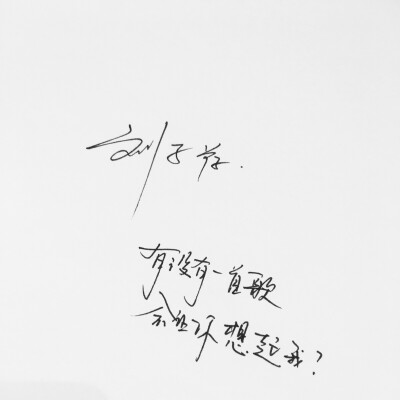 刘子
有没有一首歌
会让你想起我？